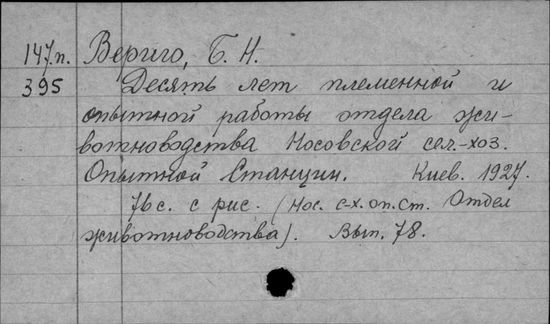 147.п. Вериго, Б. Н.
395 Десять лет племенной и
опытной работы отдела жи-
вотноводства Носовской сел.-хоз.
Опытной Станции. Киев. 1927.
76 с. с рис. (Нос. с-х. оп. ст. Отдел
животноводства). Вып. 78.